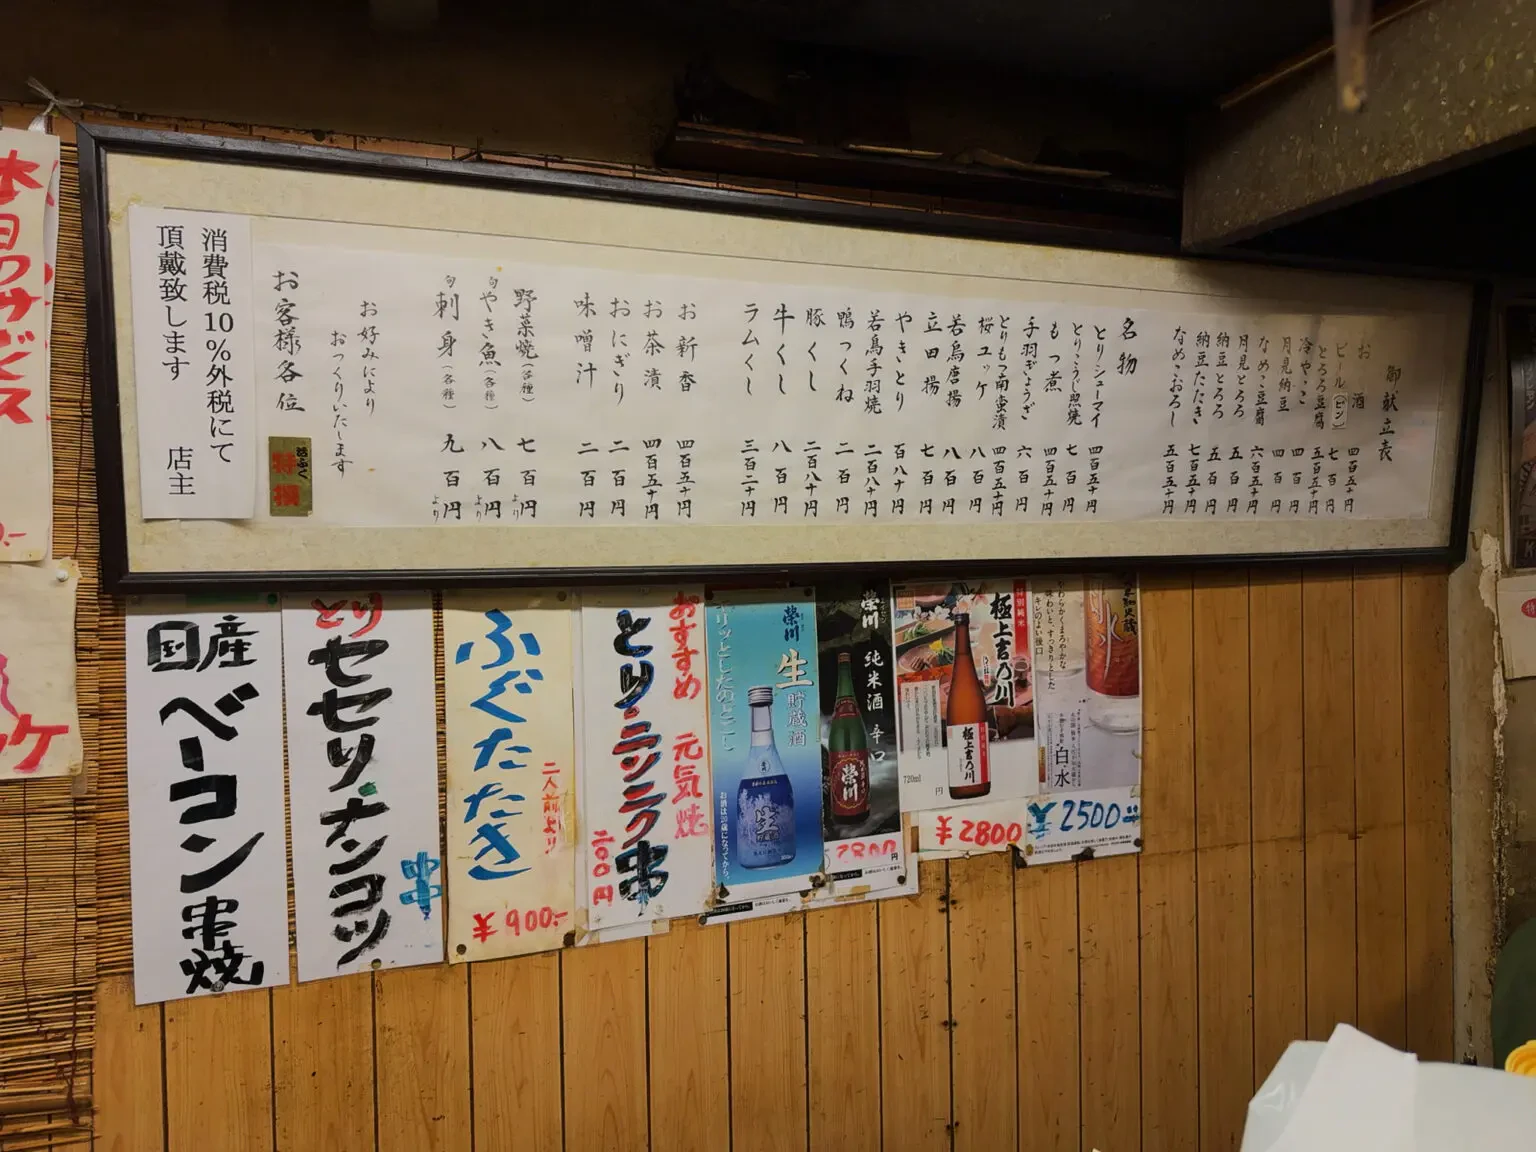 御献立表
お酒 四百五十円
ビール(ビン) 七百円
とろろ豆腐 五百五十円
冷やっこ 四百円
月見納豆 四百円
なめこ豆腐 六百五十円
月見とろろ 五百円
納豆とろろ 五百円
納豆たたき 七百五十円
なめこおろし 五百五十円
名物
とりシューマイ 四百五十円
とりこうじ照焼 七百円
もつ煮 四百五十円
手羽ぎょうざ 六百円
とりもつ南蛮漬 四百五十円
桜ユッケ 八百円
若鳥唐揚 八百円
立田揚 七百円
やきとり 百八十円
若鳥手羽焼 二百八十円
鴨つくね 二百円
豚くし 二百八十円
牛くし 八百円
ラムくし 三百二十円
お新香 四百五十円
お茶漬 四百五十円
おにぎり 二百円
味噌汁 二百円
野菜焼(各種) 七百円より
旬やき魚(各種) 八百円より
旬刺身(各種) 九百円より
お好みにより
おつくりいたします
お客様各位
消費税10%外税にて
頂戴致します 店主
特撰
本日のサービス
国産ベーコン串焼
とりセセリナンコツ串
ふぐたたき
二人前より
¥900.-
おすすめ 元気焼
とりニンニク串
二〇〇円
榮川
生貯蔵酒
キリッとしたのどごし
お酒は20歳になってから。
榮川
純米酒 辛口
2800円
特別純米
極上吉乃川
720ml
円
¥2800
やわらかくまろやかな
味わいと、すっきりとした
キレのよい後口
白水
¥2500